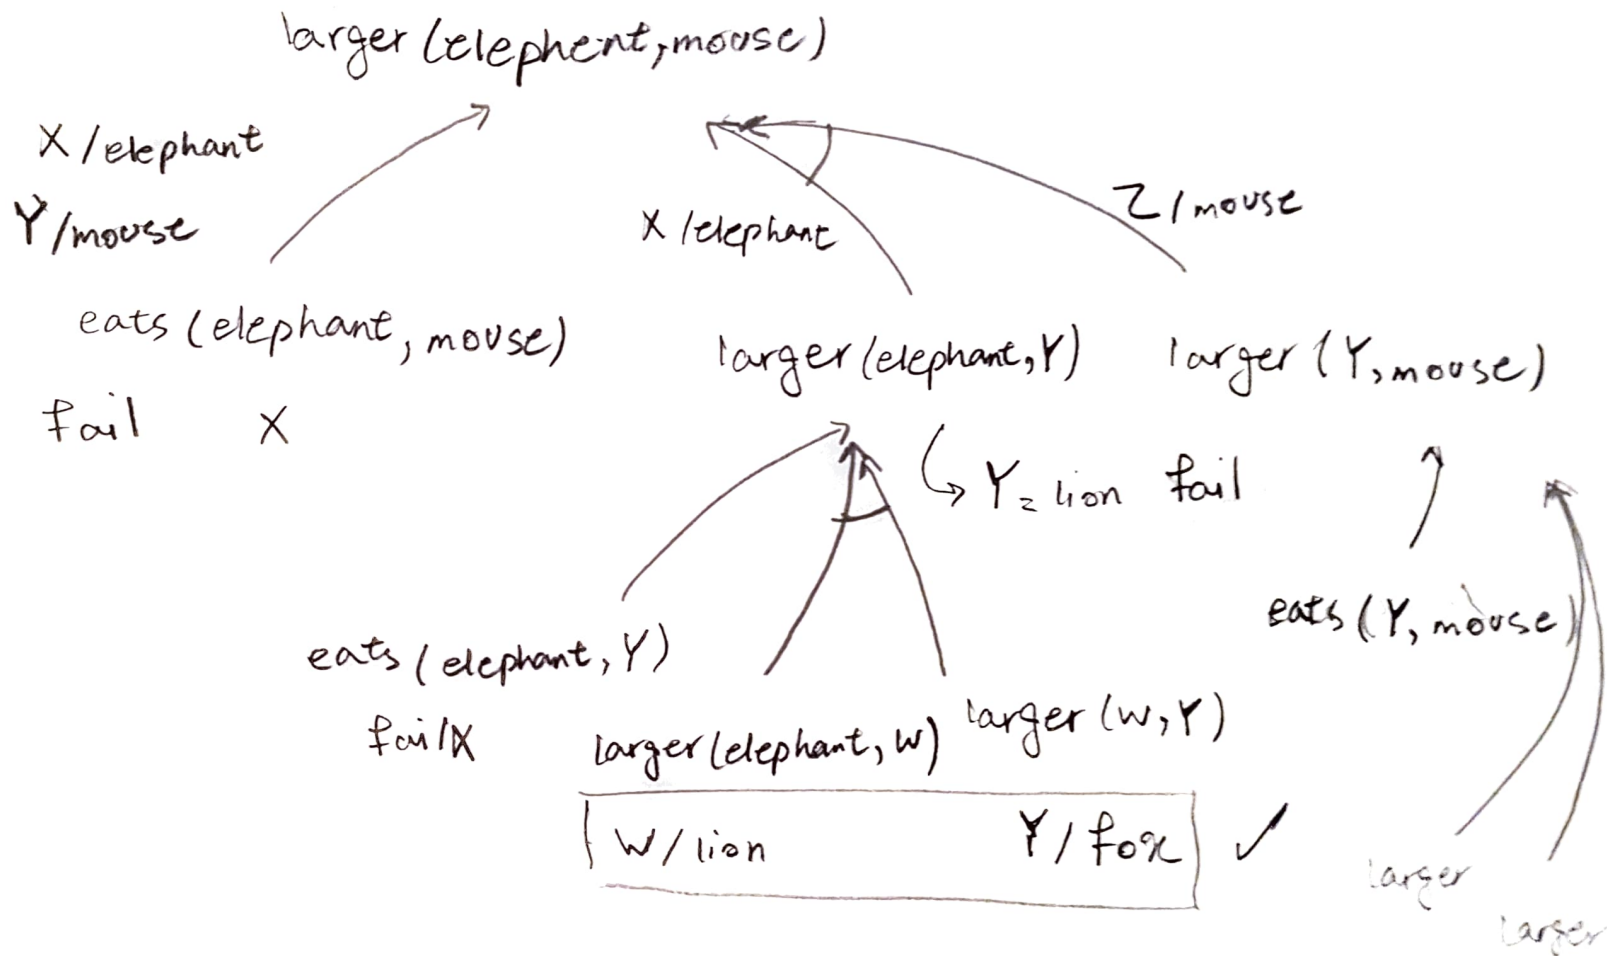 larger (elephent, mouse)
X / elephant
Y / mouse
X / elephant
Z / mouse
eats (elephant, mouse)
larger (elephant, Y)
larger (Y, mouse)
fail X
Y = lion fail
eats (elephant, Y)
eats (Y, mouse)
fail X
larger (elephant, W)
larger (W, Y)
W / lion
Y / fox ✓
larger
larger